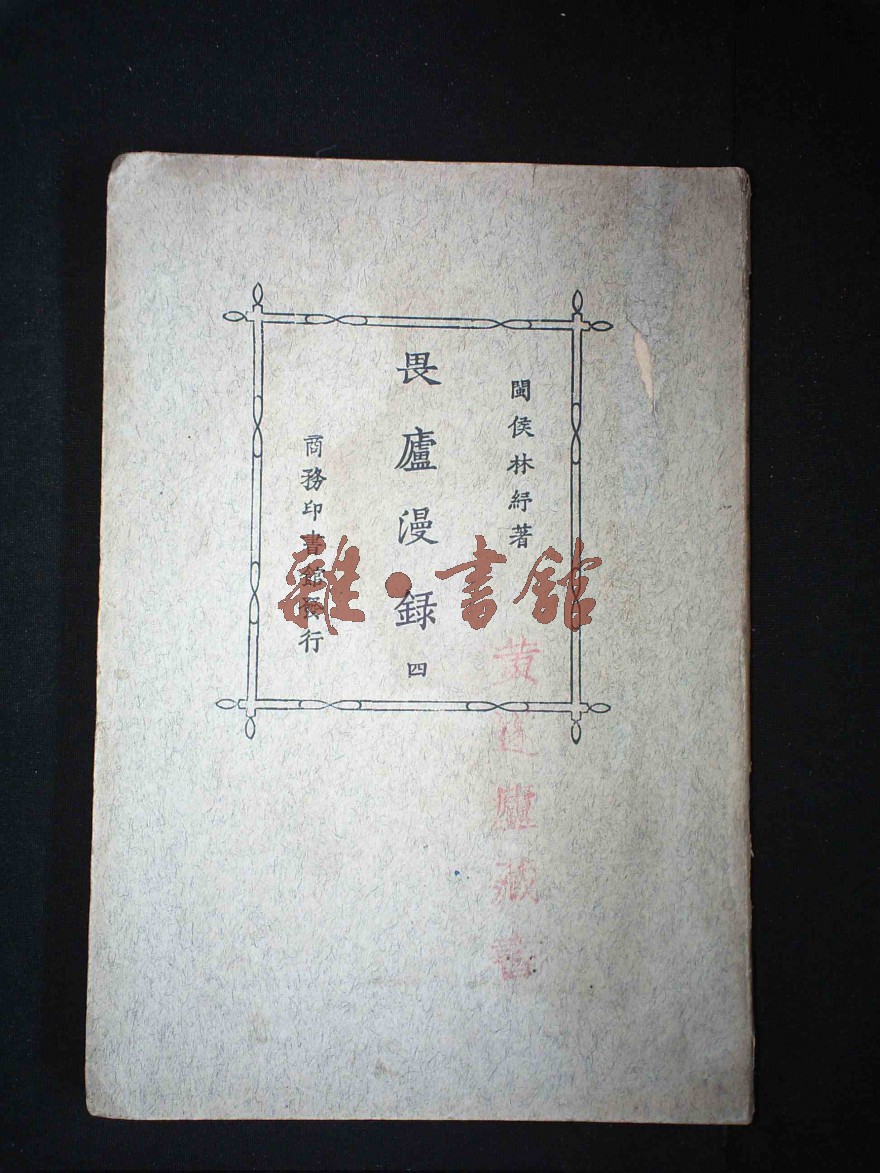 閩侯林紓著
畏廬漫録
四
商務印書館發行
雜·書館
藏書